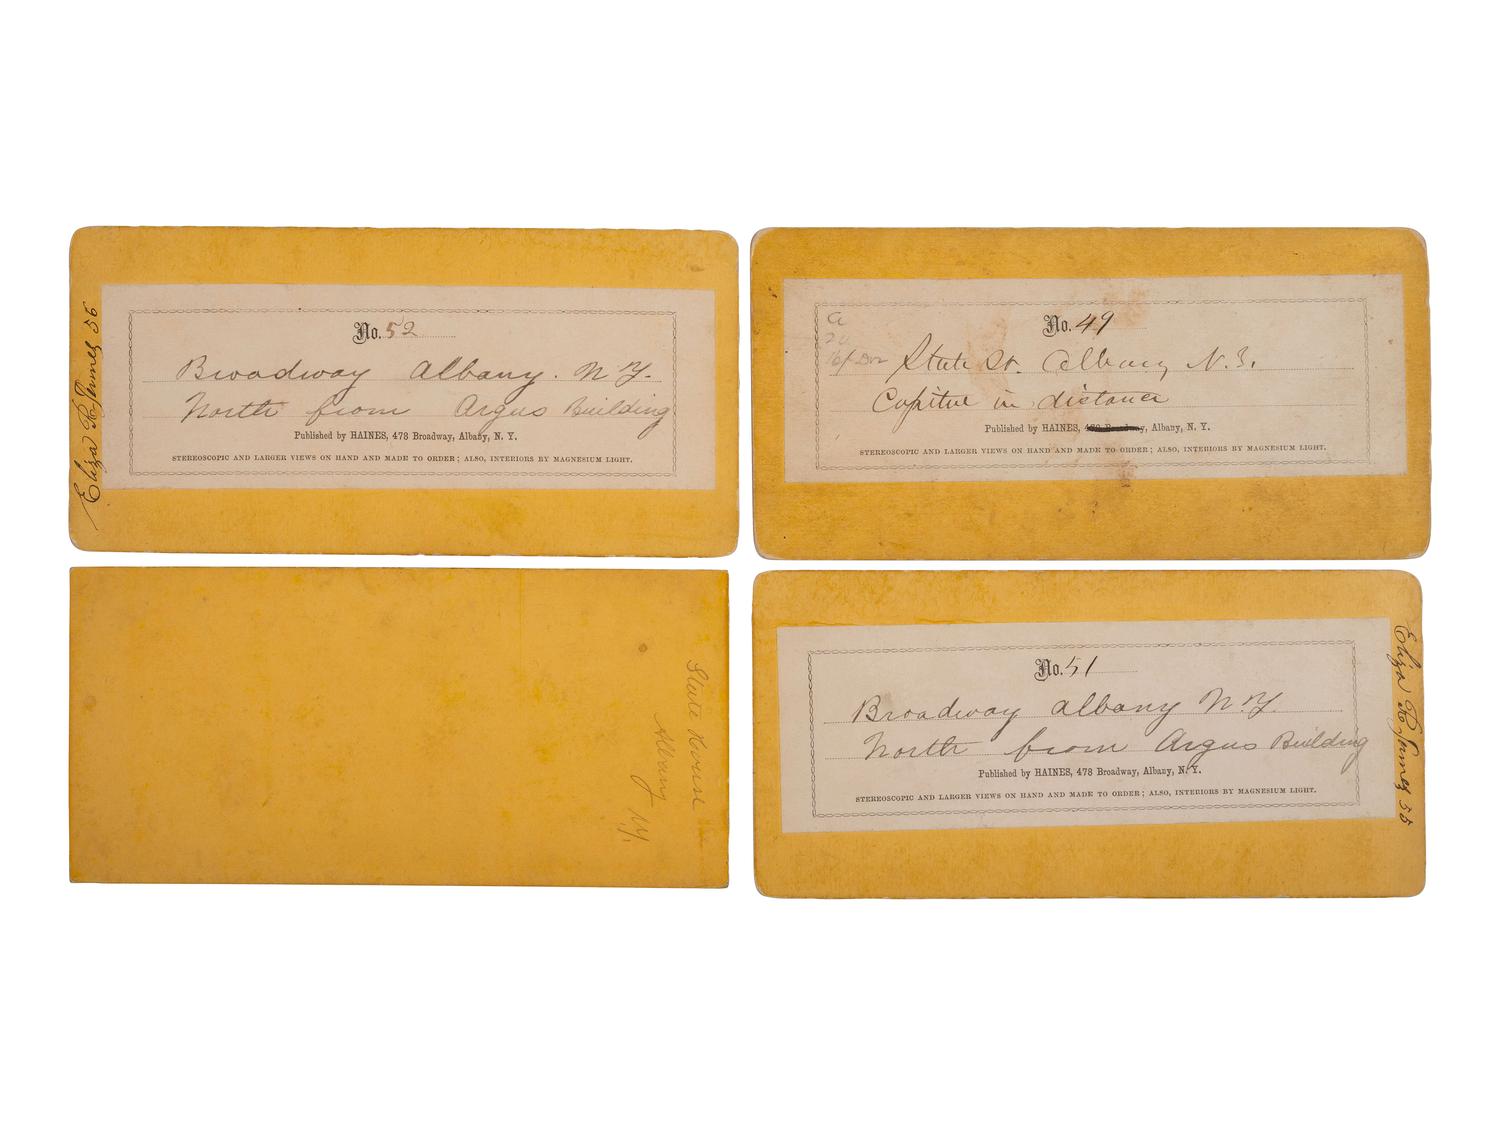 No. 52
Broadway Albany. N Y.
North from Argus Building
Published by HAINES, 478 Broadway, Albany, N. Y.
STEREOSCOPIC AND LARGER VIEWS ON HAND AND MADE TO ORDER; ALSO, INTERIORS BY MAGNESIUM LIGHT.
Eliza R 56
No. 49
State St. Albany N.Y.
Capitol in distance
Published by HAINES, 478 Broadway, Albany, N. Y.
STEREOSCOPIC AND LARGER VIEWS ON HAND AND MADE TO ORDER; ALSO, INTERIORS BY MAGNESIUM LIGHT.
State House
Albany NY.
No. 51
Broadway Albany N.Y.
North from Argus Building
Published by HAINES, 478 Broadway, Albany, N. Y.
STEREOSCOPIC AND LARGER VIEWS ON HAND AND MADE TO ORDER; ALSO, INTERIORS BY MAGNESIUM LIGHT.
Eliza R 55